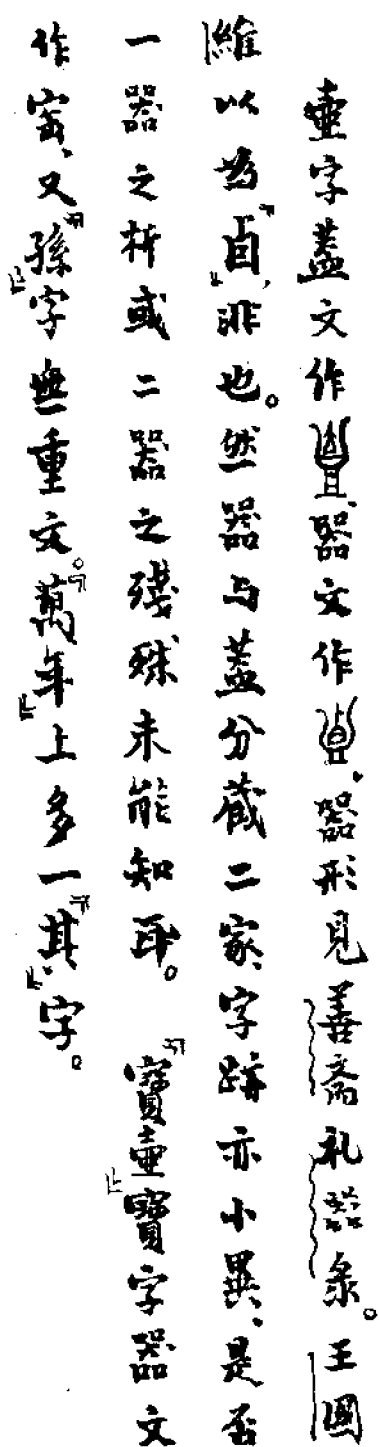 壷字蓋文作、器文作、器形見善斎礼器彔。王國
維以為「卣」,非也。然器与蓋分蔵二家、字跡亦小異、是否
一器之析或二器之殘殊未能知耳。「寶壷」寶字器文
作、又「孫」字無重文。「萬年」上多一「其」字。